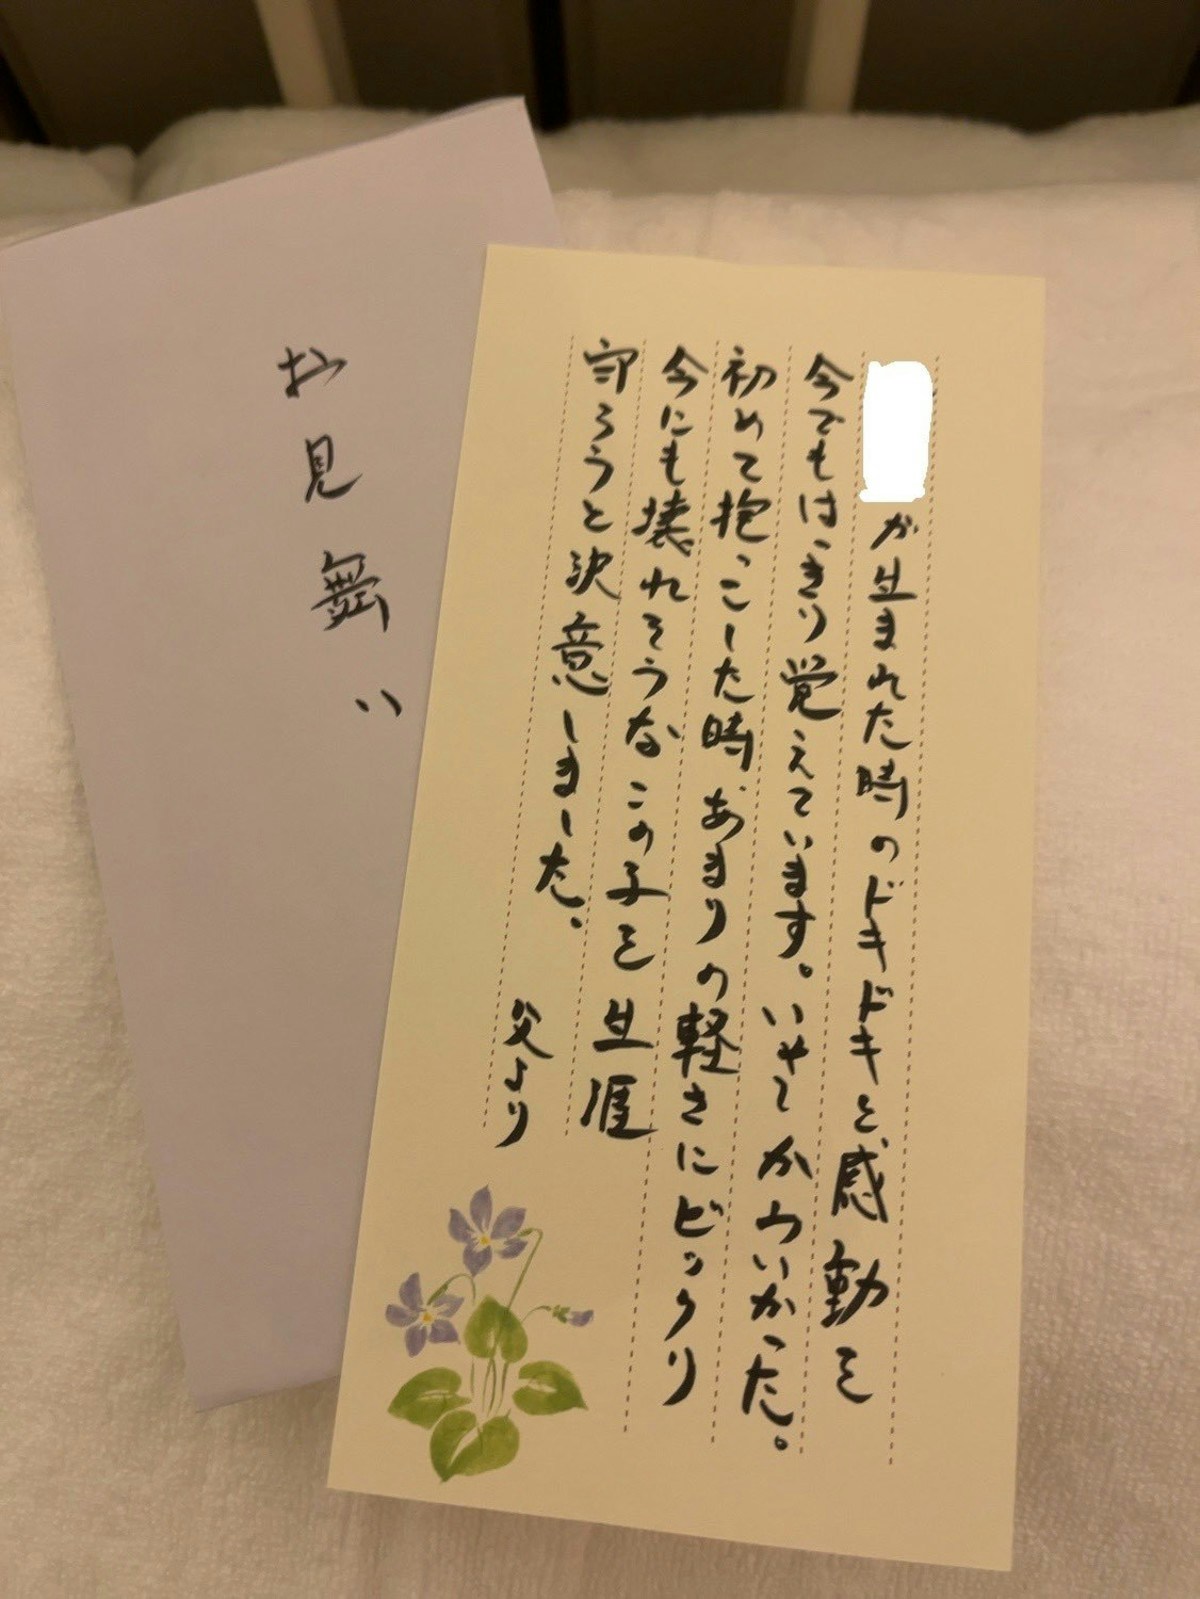 が生まれた時のドキドキと感動を
今でもはっきり覚えています。いやーかわいかった。
初めて抱っこした時、あまりの軽さにビックリ
今にも壊れそうなこの子を生涯
守ろうと決意しました。
父より
お見舞い